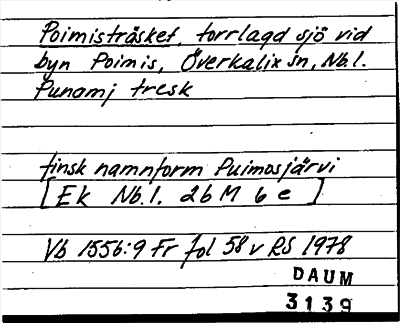 Poimisträsket, torrlagd sjö vid
byn Poimis, Överkalix sn, Nb.l.
Punamj tresk
finsk namnform Puimosjärvi
[Ek Nb.l. 26 M 6 e]
Vb 1556:9 Fr fol 58 v RS 1978
DAUM
3139